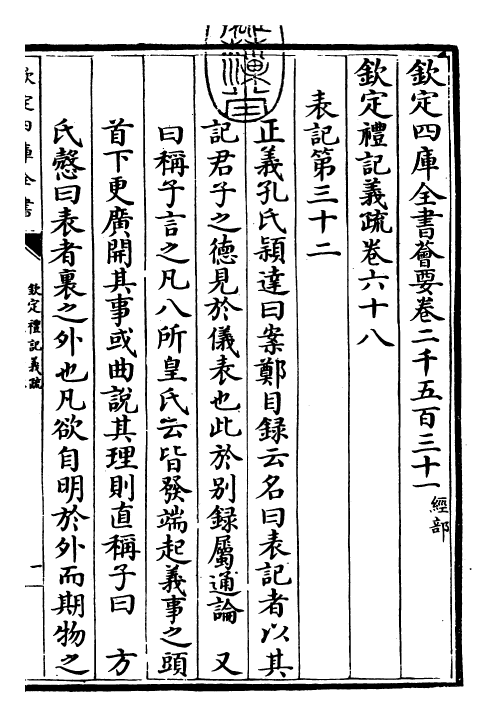 欽定四庫全書薈要卷二千五百三十一經部
欽定禮記義疏卷六十八
表記第三十二
正義孔氏穎達曰案鄭目録云名曰表記者以其
記君子之德見於儀表也此於别録屬通論　又
曰稱子言之凡八所皇氏云皆發端起義事之頭
首下更廣開其事或曲說其理則直稱子曰　方
氏慤曰表者裏之外也凡欲自明於外而期物之
欽定四庫全書
欽定禮記義疏
一